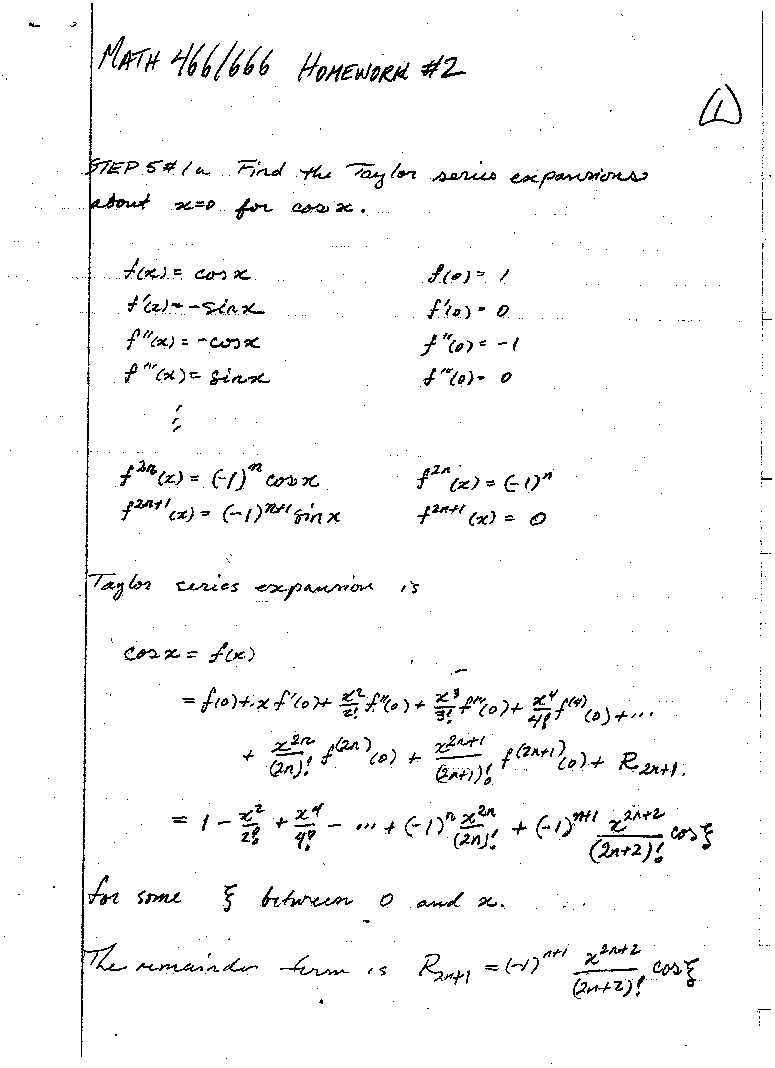 MATH 466/666 HOMEWORK #2
1
STEP 5 # 1a Find the Taylor series expansions
about x=0 for cos x.
f(x) = cos x f(0) = 1
f'(x) = -sin x f'(0) = 0
f''(x) = -cos x f''(0) = -1
f'''(x) = sin x f'''(0) = 0
⋮
f^{2n}(x) = (-1)^n cos x f^{2n}(x) = (-1)^n
f^{2n+1}(x) = (-1)^{n+1} sin x f^{2n+1}(x) = 0
Taylor series expansion is
cos x = f(x)
= f(0) + x f'(0) + x^2/2! f''(0) + x^3/3! f'''(0) + x^4/4! f^{(4)}(0) + ...
+ x^{2n}/(2n)! f^{(2n)}(0) + x^{2n+1}/(2n+1)! f^{(2n+1)}(0) + R_{2n+1}.
= 1 - x^2/2! + x^4/4! - ... + (-1)^n x^{2n}/(2n)! + (-1)^{n+1} x^{2n+2}/(2n+2)! cos ξ
for some ξ between 0 and x.
The remainder term is R_{2n+1} = (-1)^{n+1} x^{2n+2}/(2n+2)! cos ξ